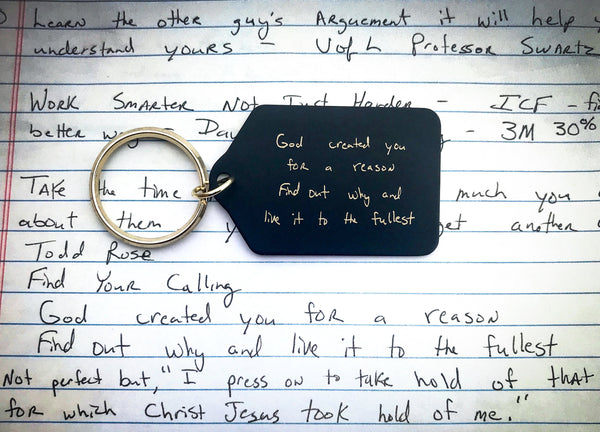 Learn the other guy's Arguement it will help
understand yours - U of L Professor Swartz
Work Smarter Not Just Harder - ICF - fi
better way - Day - 3M 30%
Take the time much you
about them y get another
Todd Rose
Find Your Calling
God created you for a reason
Find out why and live it to the fullest
Not perfect but, "I press on to take hold of that
for which Christ Jesus took hold of me."
God created you
for a reason
Find out why and
live it to the fullest